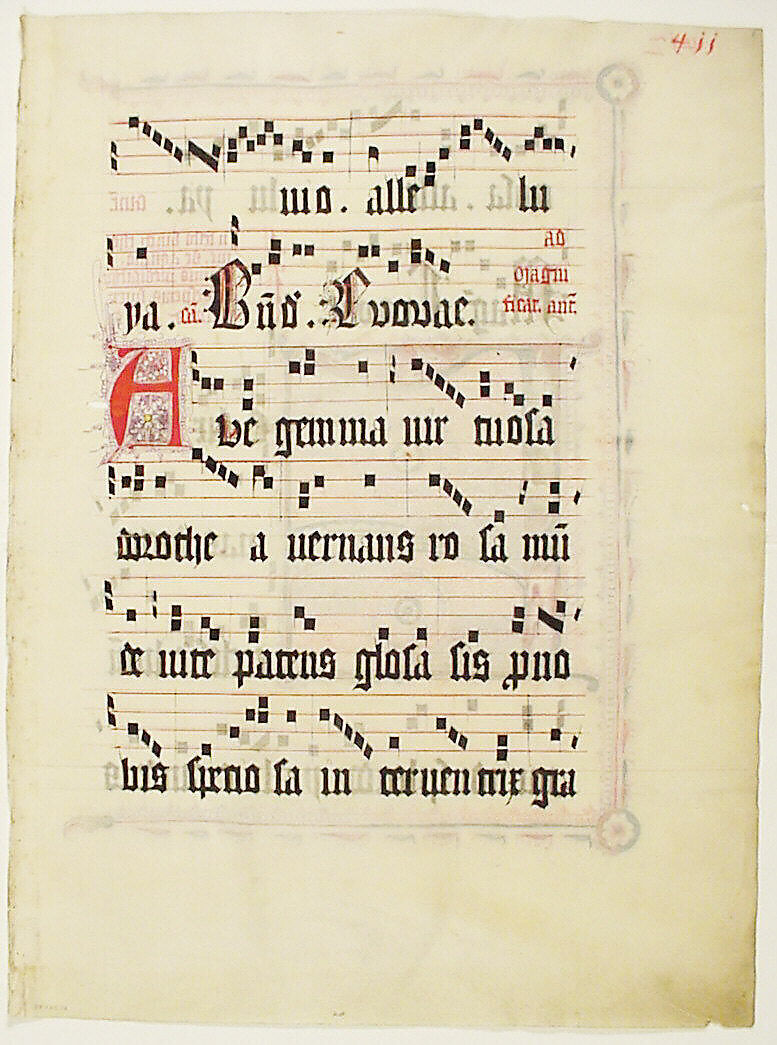 4 jj
mo. alle lu
ad
ya. añ. Bñd. Evovae. magni
ficat. ant.
AVe gemma uir tuosa
dorothe a uernans ro sa mū
de uite patens glosa sis p̱no
bis spetio sa in teruen trix gra